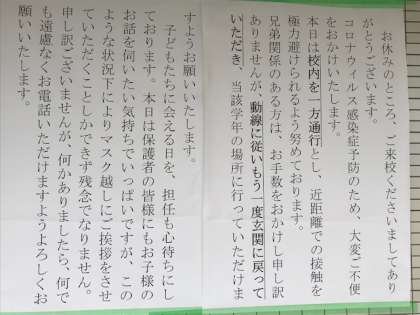 お休みのところ、ご来校くださいましてあり
がとうございます。
コロナウィルス感染症予防のため、大変ご不便
をおかけいたします。
本日は校内を一方通行とし、近距離での接触を
極力避けられるよう努めております。
兄弟関係のある方は、お手数をおかけし申し訳
ありませんが、動線に従いもう一度玄関に戻って
いただき、当該学年の場所に行っていただけま
すようお願いいたします。
子どもたちに会える日を、担任も心待ちにし
ております。本日は保護者の皆様にもお子様の
お話を伺いたい気持ちでいっぱいですが、この
ような状況下によりマスク越しにご挨拶をさせ
ていただくことしかできず残念でなりません。
申し訳ございませんが、何かありましたら、何で
も遠慮なくお電話いただけますようよろしくお
願いいたします。